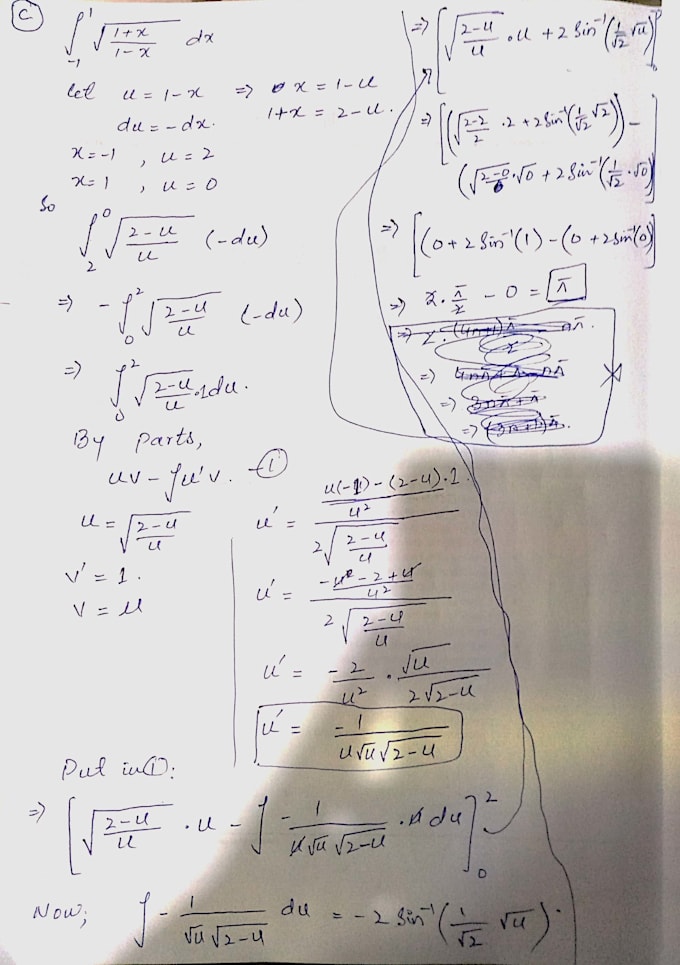 (C)
∫_{-1}^{1} √((1+x)/(1-x)) dx
let u = 1-x ⇒ x = 1-u
du = -dx. 1+x = 2-u.
x = -1 , u = 2
x = 1 , u = 0
So
∫_{2}^{0} √((2-u)/u) (-du)
⇒ -∫_{0}^{2} √((2-u)/u) (-du)
⇒ ∫_{0}^{2} √((2-u)/u) .1du.
By parts,
uv - ∫u'v. -①
u = √((2-u)/u)
v' = 1.
v = u
u' = ((u(-1) - (2-u).1)/u²)/(2√((2-u)/u))
u' = ((-u - 2 + u)/u²)/(2√((2-u)/u))
u' = -2/u² . √u/(2√(2-u))
u' = -1/(u√u√(2-u))
Put in ①:
⇒ [√((2-u)/u) .u - ∫ -1/(u√u√(2-u)) .u du]_{0}^{2}
Now; ∫ -1/(√u√(2-u)) du = -2 Sin⁻¹(1/√2 √u).
⇒ [√((2-u)/u) .u + 2 Sin⁻¹(1/√2 √u)]
⇒ [(√((2-2)/2) .2 + 2 Sin⁻¹(1/√2 √2)) -
(√(2-0).√0 + 2 Sin⁻¹(1/√2 .√0)]
⇒ [(0 + 2 Sin⁻¹(1) - (0 + 2 sin⁻¹(0)]
⇒ 2. π/2 - 0 = π